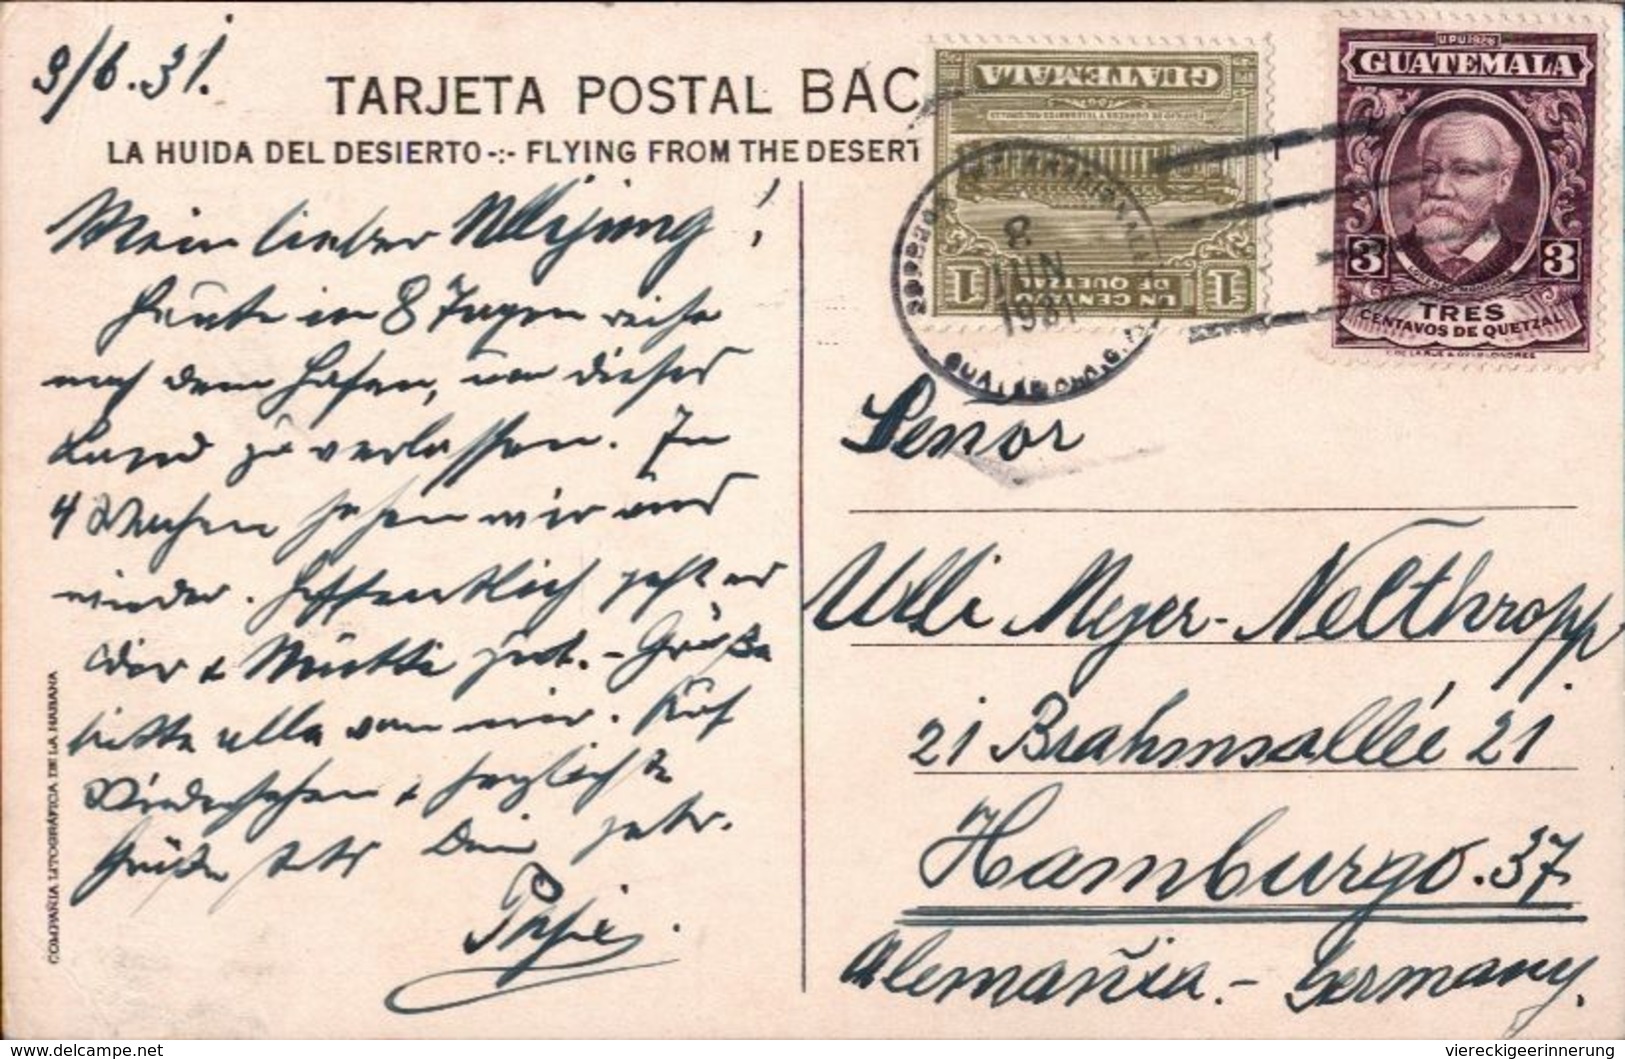 9/6.31.
TARJETA POSTAL BAC
LA HUIDA DEL DESIERTO -:- FLYING FROM THE DESERT
Mein lieber Ullijung!
Heute in 8 Tagen reise
nach dem Hafen, um dieses
Land zu verlassen. In
4 Wochen sehen wir uns
wieder. Hoffentlich geht es
Dir & Mutti gut. – Grüße
bitte alle von mir. Auf
Wiedersehen & herzlichste
Grüße Dein
COMPAÑIA LITOGRÁFICA DE LA HABANA
GUATEMALA
1 UN CENTAVO DE QUETZAL 1
CORREOS
8
JUN
1931
GUATEMALA, C.A.
U.P.U. 1926
GUATEMALA
3 3
TRES
CENTAVOS DE QUETZAL
Señor
Ulli Meyer-Nelthropp
21 Brahmsallée 21
Hamburgo. 37
Alemañia. – Germany.
viereckigeerinnerung